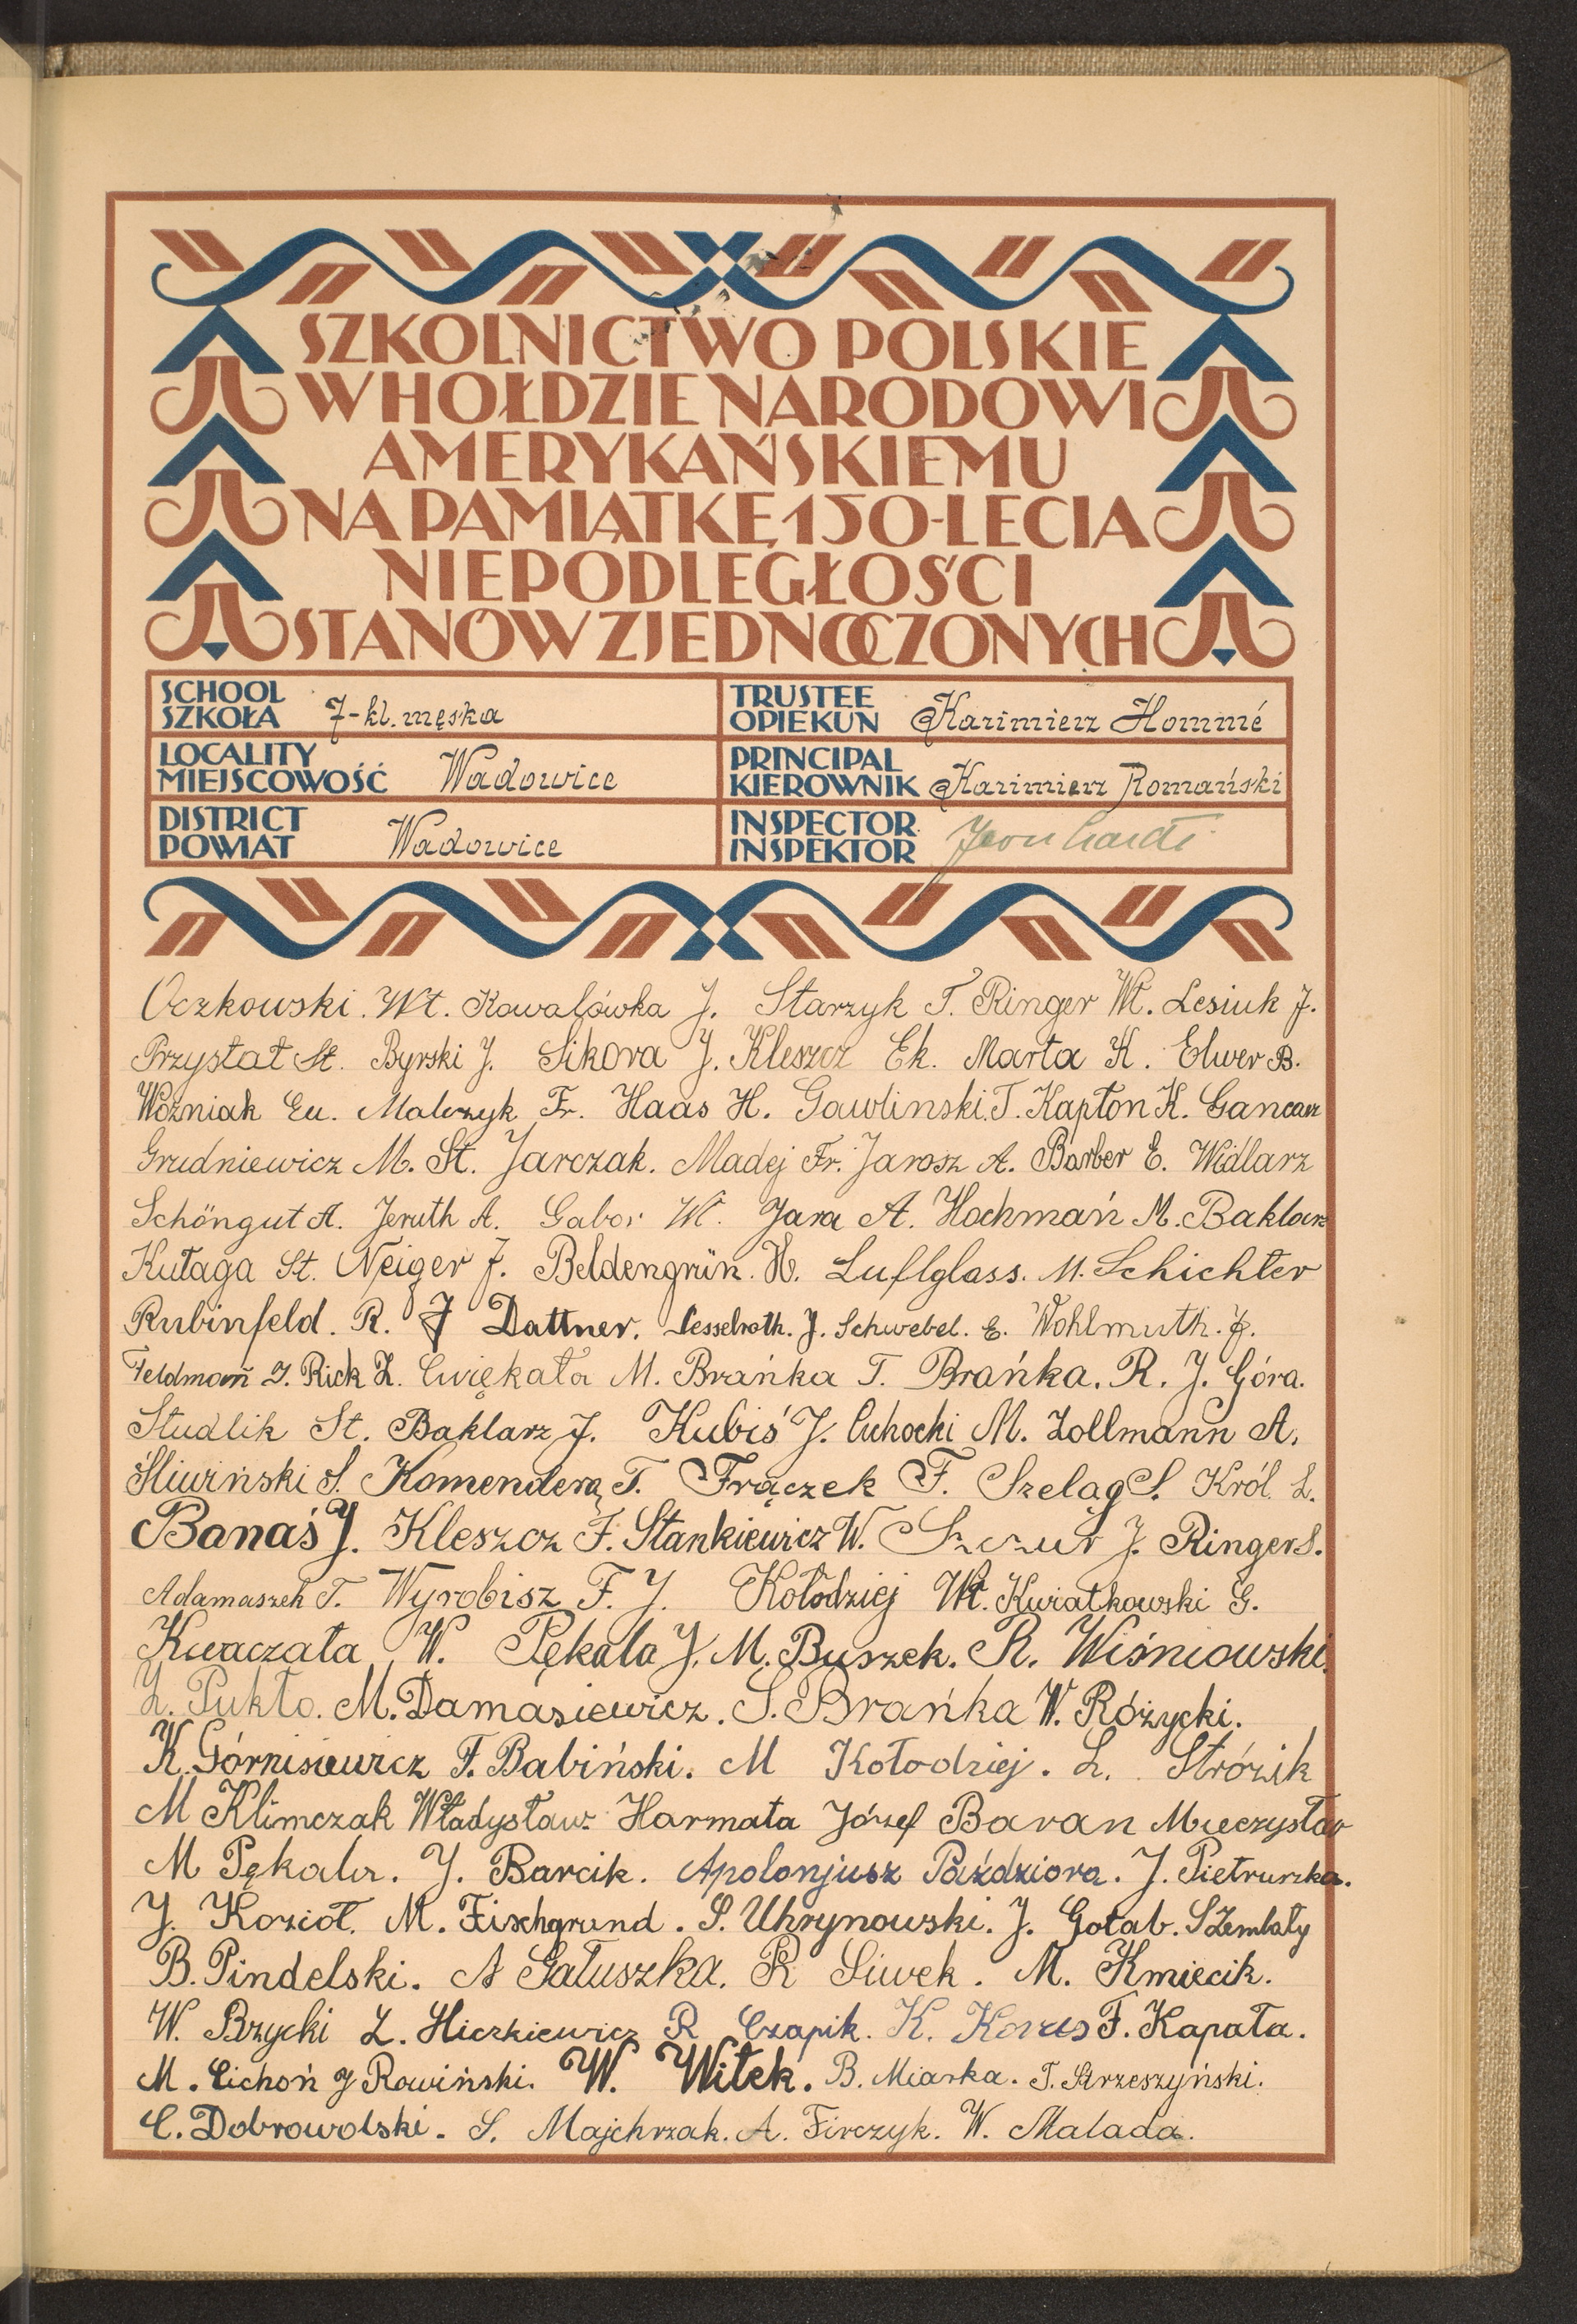 SZKOLNICTWO POLSKIE
W HOŁDZIE NARODOWI
AMERYKAŃSKIEMU
NA PAMIĄTKĘ 150-LECIA
NIEPODLEGŁOŚCI
STANÓW ZJEDNOCZONYCH
SCHOOL
SZKOŁA 7-kl. męska
TRUSTEE
OPIEKUN Kazimierz Hommé
LOCALITY
MIEJSCOWOŚĆ Wadowice
PRINCIPAL
KIEROWNIK Kazimierz Romański
DISTRICT
POWIAT Wadowice
INSPECTOR
INSPEKTOR
Oczkowski. Wł. Kowalówka J. Starzyk T. Ringer Wł. Lesiuk J.
Przystał St. Byrski J. Sikora J. Kleszcz Ek. Marta K. Elwer B.
Woźniak Eu. Malczyk Fr. Haas H. Gawlinski. T. Kapłon K. Gancarz
Grudniewicz M. St. Jarczak. Madej Fr. Jarosz A. Barber E. Widlarz
Schöngut A. Jeruth A. Gabor Wł. Jara A. Hochmań M. Baklarz
Kutaga St. Neiger J. Beldengrün. H. Luftglass. M. Schichter
Rubinfeld. R. J Dattner. Lesselroth. J. Schwebel. E. Wohlmuth. J.
Feldmann J. Rick Z. Ćwiękała M. Brańka T. Brańka. R. J. Góra.
Studlik St. Baklarz J. Kubiś J. Cichocki M. Zollmann A.
Śliwiński S. Komendera T. Frączek F. Szeląg S. Król L.
Banaś J. Kleszcz F. Stankiewicz W. Szczur J. Ringer S.
Adamaszek T. Wyrobisz F. J. Kołodziej Wł. Kwiatkowski G.
Kwaczała W. Pękala J. M. Buszek. R. Wiśniowski.
L. Pukło. M. Damasiewicz. S. Brańka W. Różycki.
K. Górnisiewicz F. Babiński. M Kołodziej. L. Stróżik
M Klimczak Władysław Harmata Józef Baran Mieczysław
M Pękala. J. Barcik. Apolonjusz Paździora. J. Pietruszka.
J. Kozioł. M. Fischgrund. S. Uhrynowski. J. Gołab. S Zembaty
B. Pindelski. A Gałuszka. R Siwek. M. Kmiecik.
W. Bzycki L. Hiczkiewicz R Czapik. K. F. Kapała.
M. Cichoń J Rowiński. W. Witek. B. Miarka. T. Strzeszyński.
C. Dobrowolski. S. Majchrzak. A. Firczyk. W. Malada.